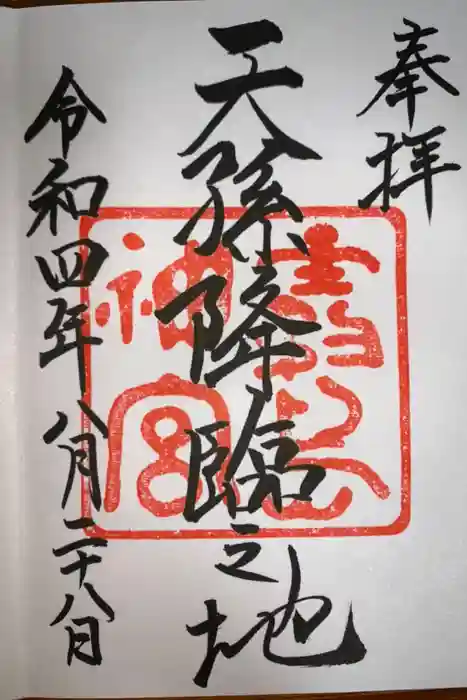 奉拝
天孫降臨之地
令和四年八月二十八日
神宮